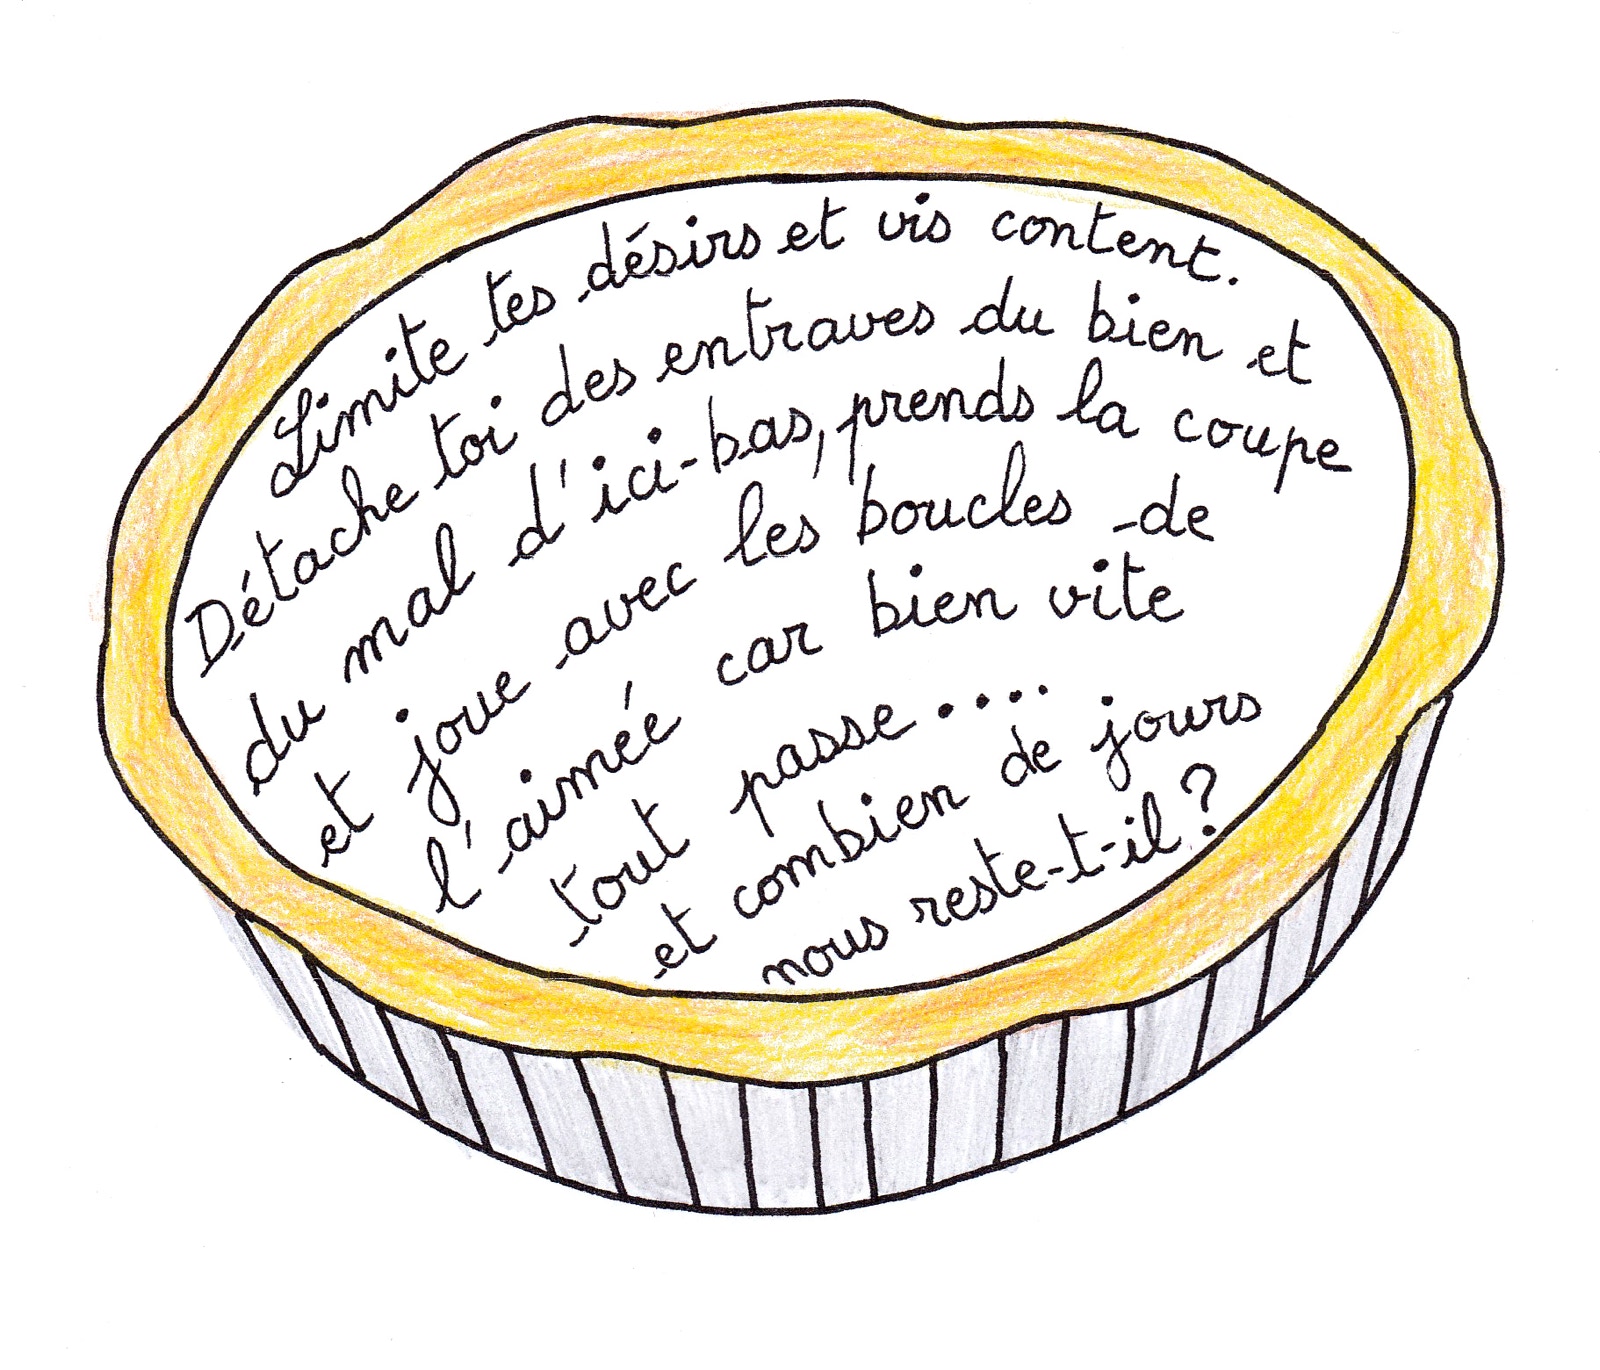 Limite tes désirs et vis content.
Détache toi des entraves du bien et
du mal d'ici-bas, prends la coupe
et joue avec les boucles de
l'aimée car bien vite
tout passe....
et combien de jours
nous reste-t-il ?